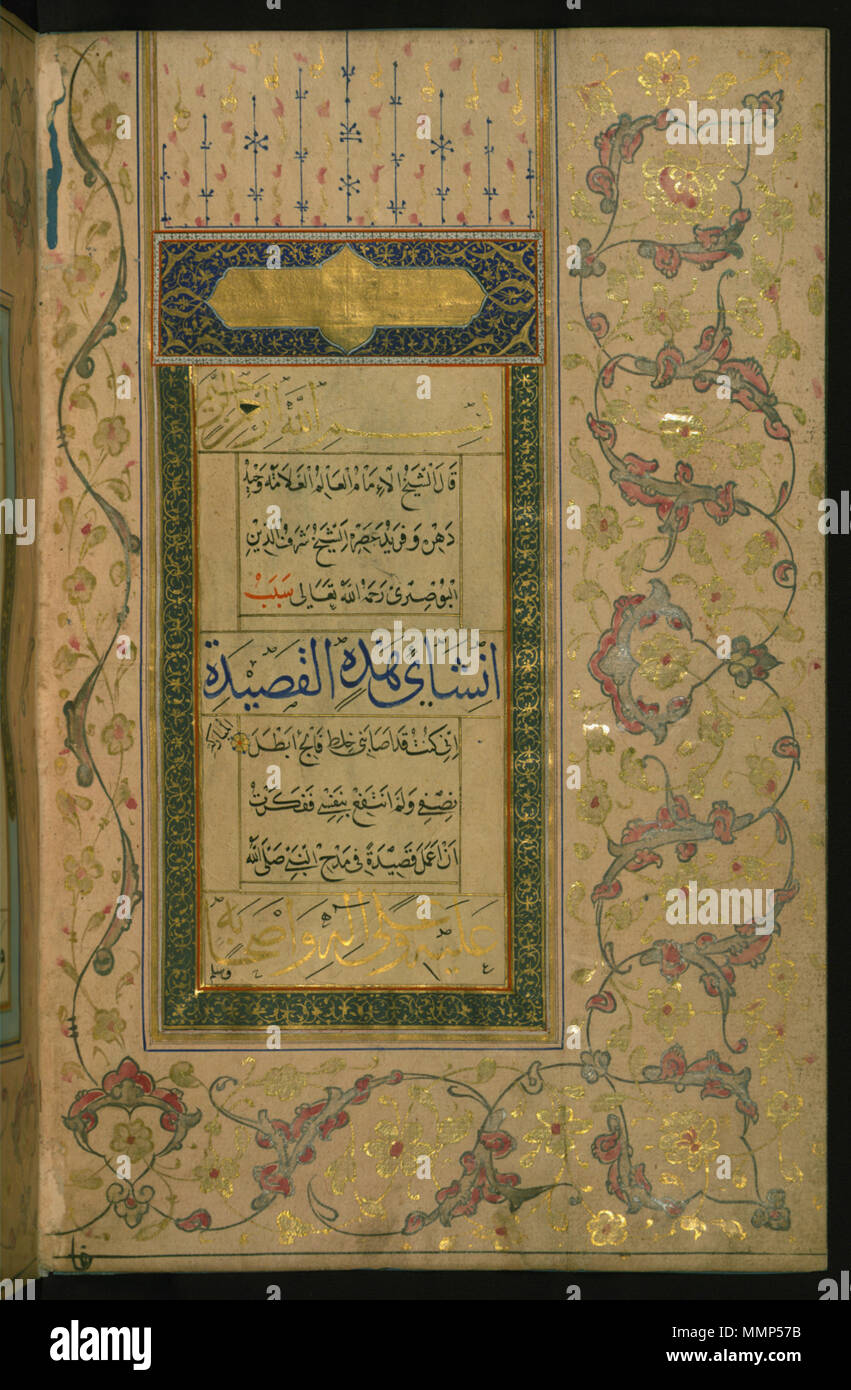 بسم الله الرحمن الرحيم
قال الشيخ الإمام العالم العلامة وحيد
دهره وفريد عصره الشيخ شرف الدين
البوصيري رحمه الله تعالى سبب
انشائي بهذه القصيدة
اني كنت قد اصابني خلط فالج ابطل
نصفي ولم انتفع بنفسي ففكرت
ان اعمل قصيدة في مدح النبي صلى الله
عليه وعلى اله واصحابه
وسلم
alamy
Image ID: MMP57B
www.alamy.com